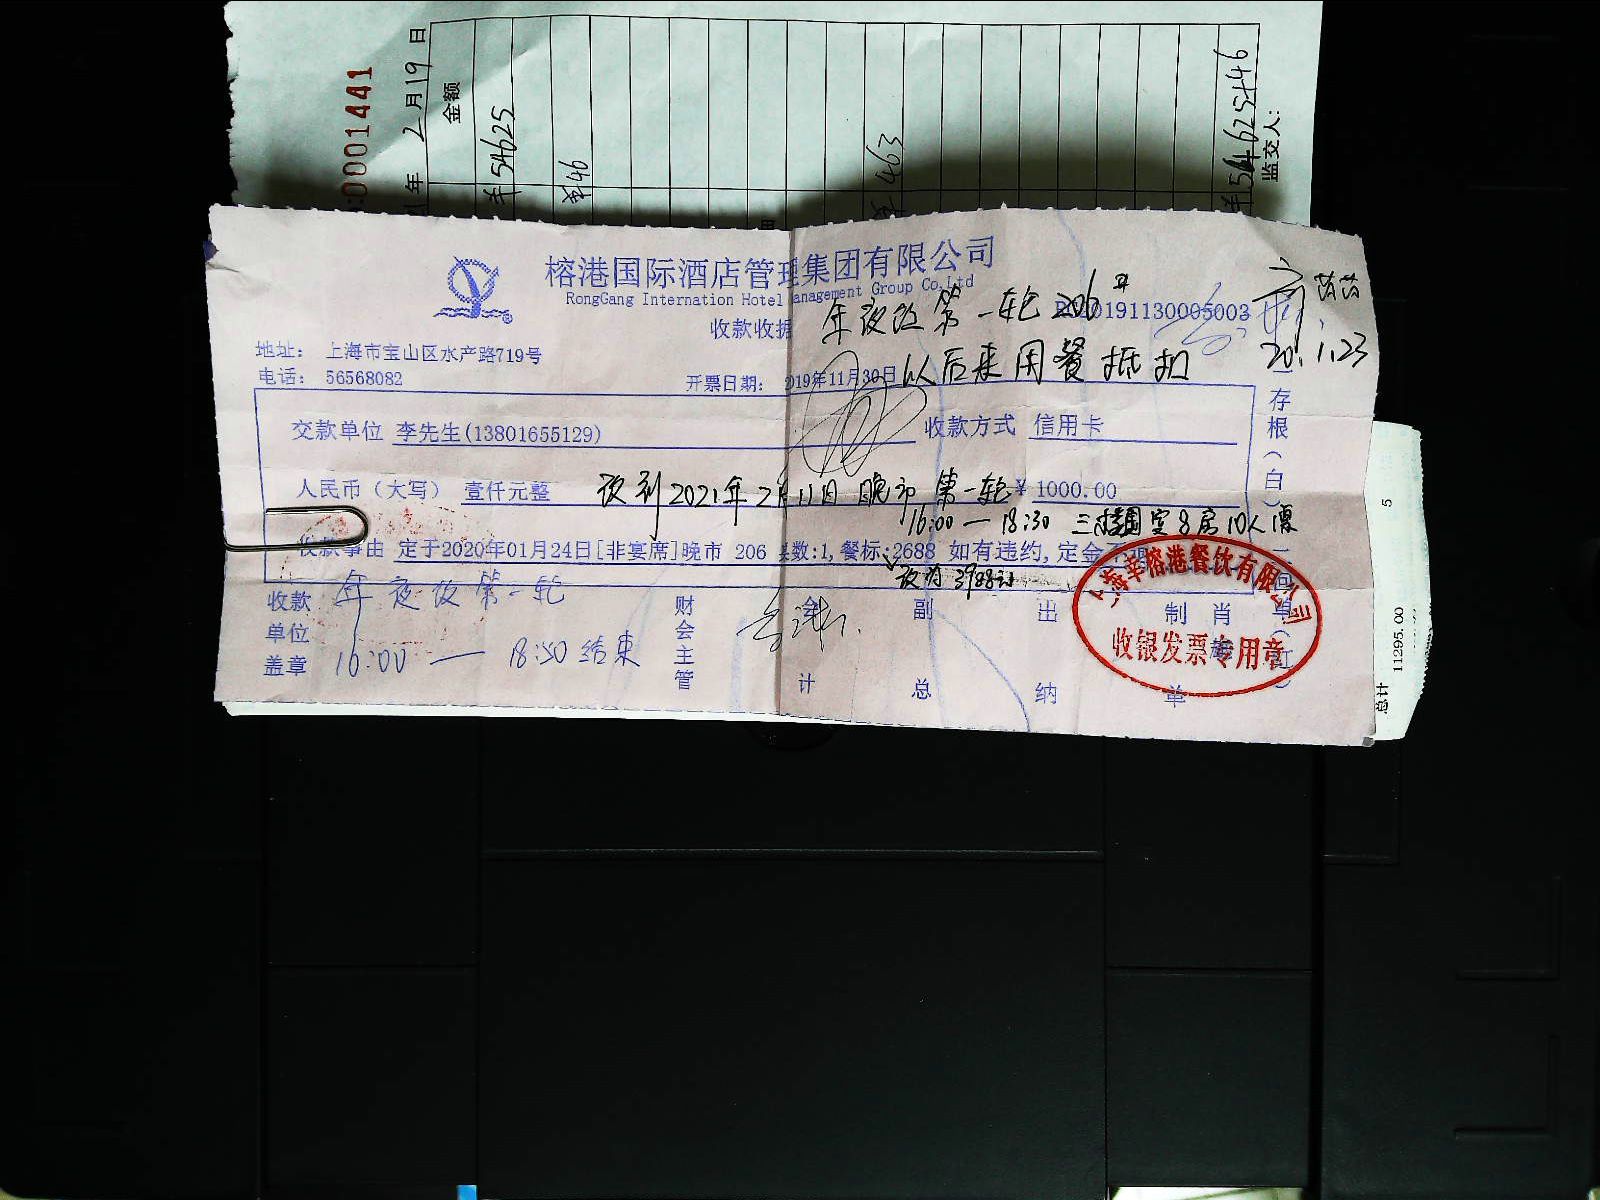 0001441
年 2月19日
金额
¥54625
¥46
¥463
¥54625446
监交人:
榕港国际酒店管理集团有限公司
RongGang Internation Hotel Management Group Co.Ltd
收款收据
年夜饭第一轮206#
0191130005003
地址: 上海市宝山区水产路719号
电话: 56568082
开票日期: 2019年11月30日
以后来用餐抵扣
20.1.23
交款单位 李先生(13801655129)
收款方式 信用卡
人民币(大写) 壹仟元整
改到2021年2月11日晚市第一轮
¥ 1000.00
16:00—18:30 三楼国定8房10人/桌
收款事由 定于2020年01月24日[非宴席]晚市 206 桌数:1,餐标:2688 如有违约,定金不退
改为3988
年夜饭第一轮
16:00—18:30结束
收款单位盖章
财会主管
会计
副总
出纳
制单
肖
上海莘榕港餐饮有限公司
收银发票专用章
存根(白)
回单(红)
5
总计 11295.00